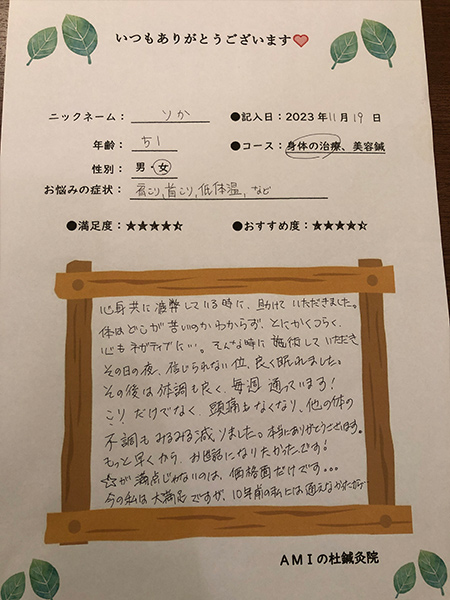 いつもありがとうございます
ニックネーム： りか
●記入日：2023年11月19日
年齢： 51
●コース：身体の治療、美容鍼
性別： 男・女
お悩みの症状： 肩こり,首こり,低体温,など
●満足度：★★★★⯪
●おすすめ度：★★★★⯪
心身共に疲弊している時に、助けていただきました。
体はどこが苦いのかわからず、とにかくつらく、
心もネガティブに…。そんな時に施術していただき
その日の夜、信じられない位、良く眠れました。
その後は体調も良く、毎週通っています！
こりだけでなく、頭痛もなくなり、他の体の
不調もみるみる減りました。本当にありがとうございます。
もっと早くから、お世話になりたかったです！
☆が満点じゃないのは、価格面だけです...
今の私は大満足ですが、10年前の私には通えなかったから
AMIの杜鍼灸院